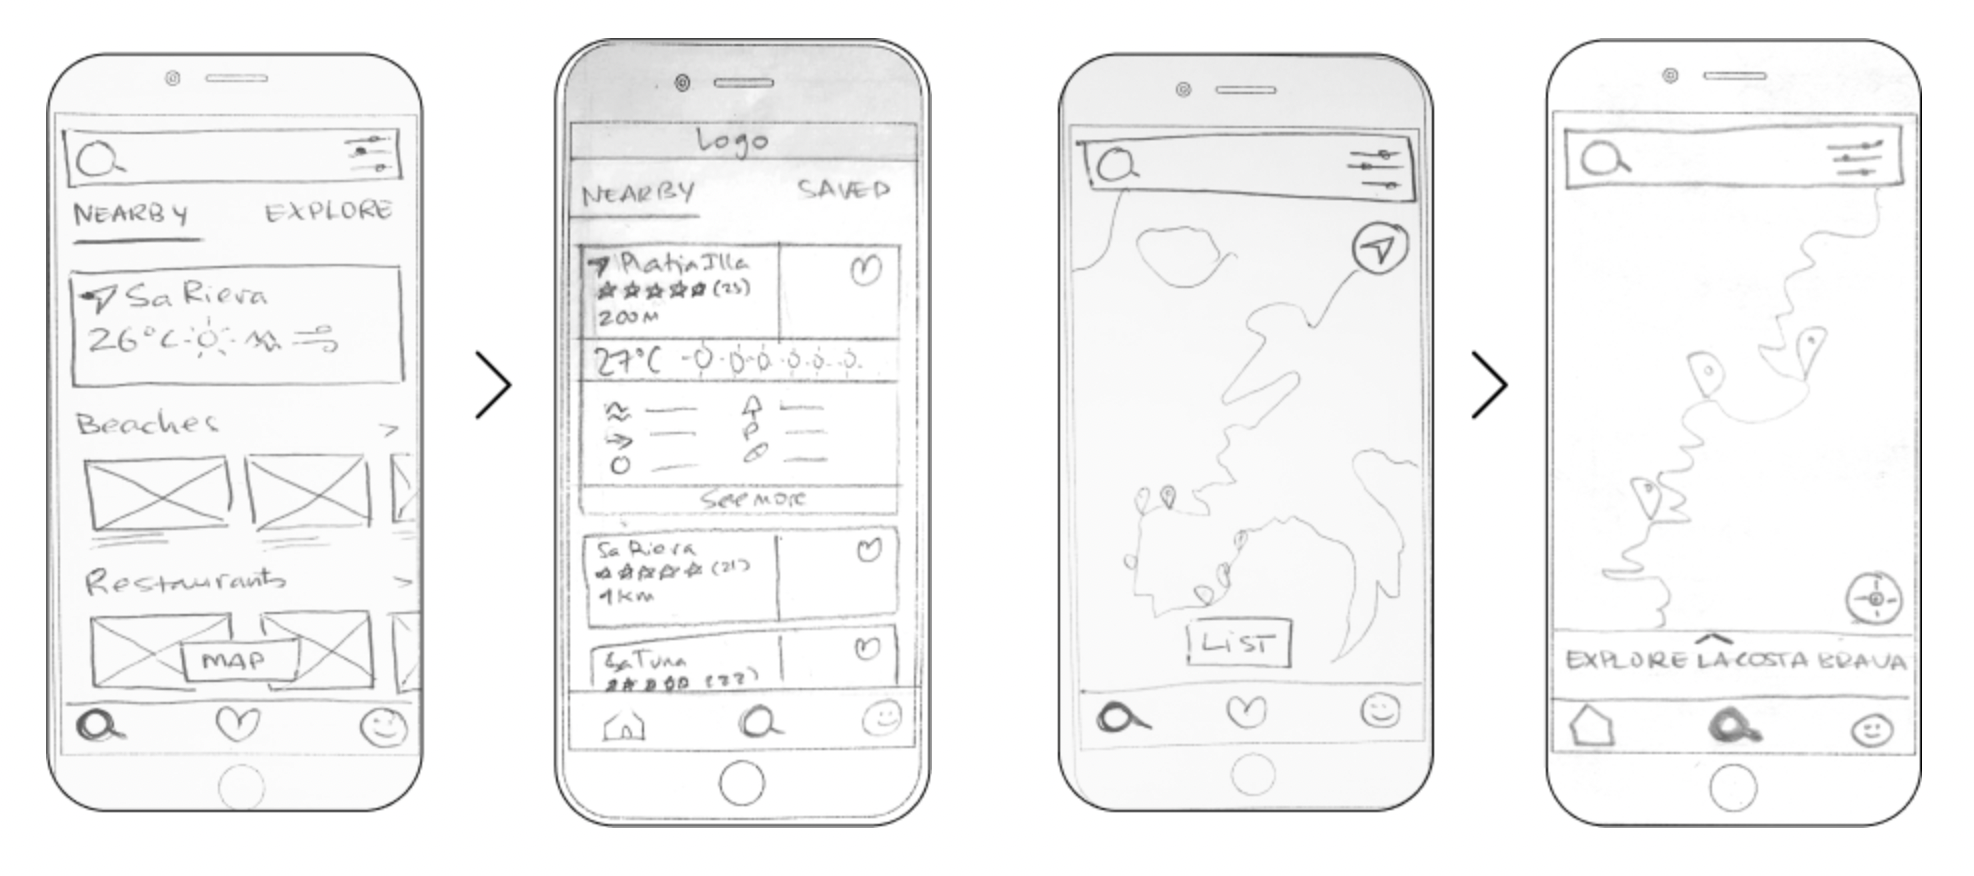 NEARBY EXPLORE
Sa Riera
26°C
Beaches >
Restaurants >
MAP
Logo
NEARBY SAVED
Platja Illa
(25)
200M
27°C
P
See more
Sa Riera
(21)
1km
Sa Tuna
(22)
LIST
EXPLORE LA COSTA BRAVA